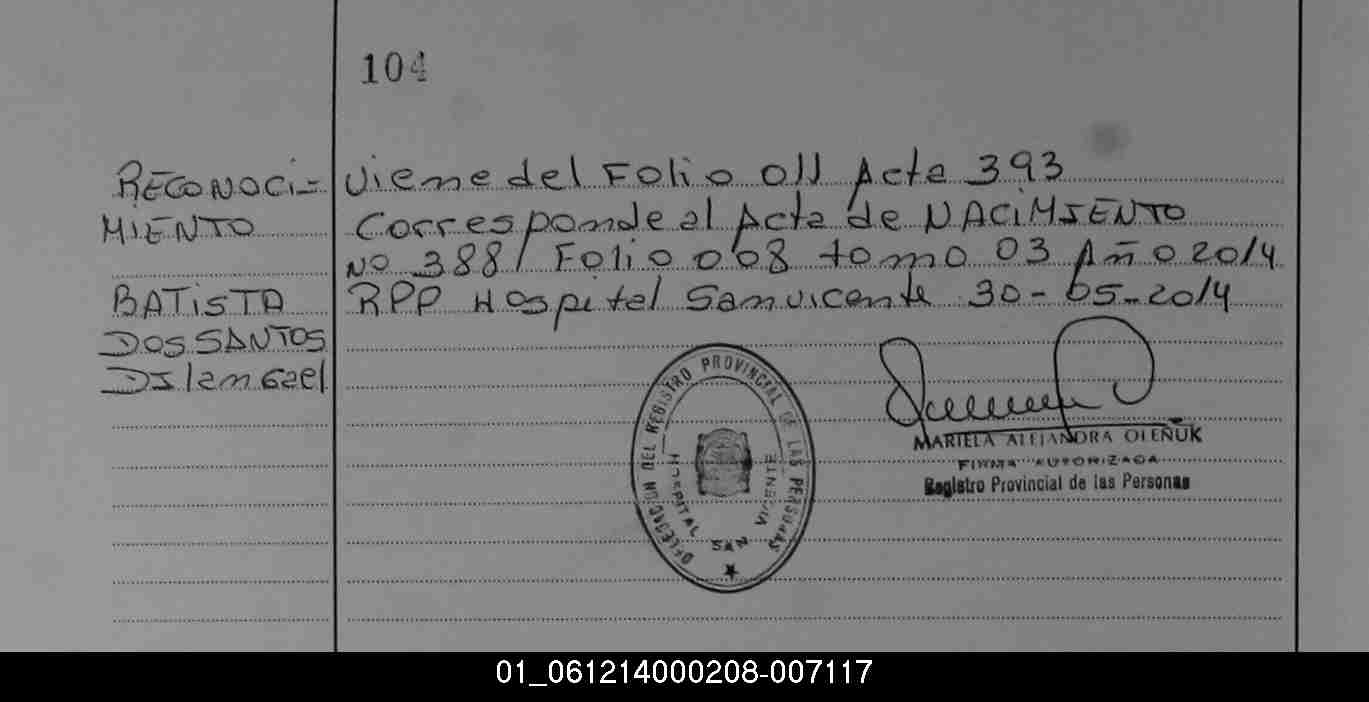 104
RECONOCI- Viene del Folio 011 Acta 393
MIENTO Corresponde al Acta de NACIMIENTO
No 388 / Folio 008 tomo 03 Año 2014
BATISTA RPP Hospital San Vicente 30-05-2014
DOS SANTOS
DILAN GAEL
DELEGACION DEL REGISTRO PROVINCIAL DE LAS PERSONAS
HOSPITAL SAN VICENTE
MARIELA ALEJANDRA OLEÑUK
FIRMA AUTORIZADA
Registro Provincial de las Personas
01_061214000208-007117